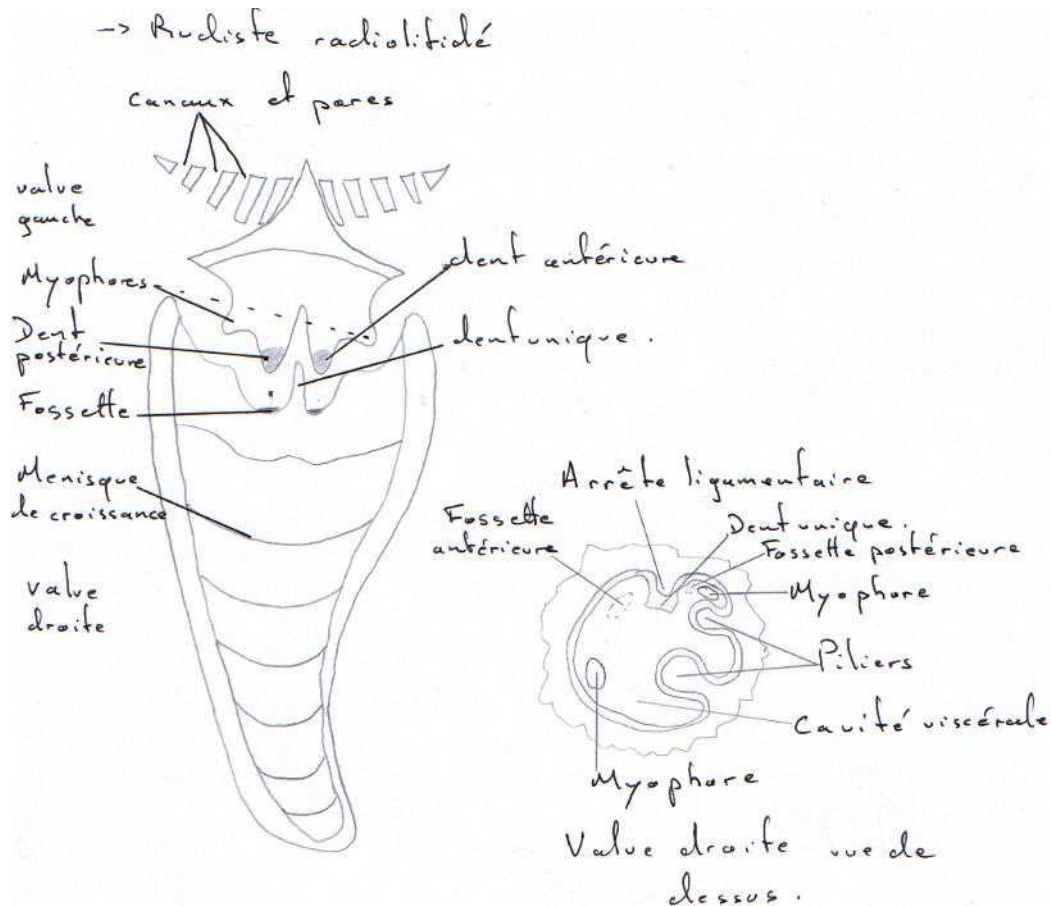 -> Rudiste radiolitidé
canaux et pores
valve
gauche
Myophores
Dent
postérieure
Fossette
Menisque
de croissance
valve
droite
dent antérieure
dent unique.
Arrête ligamentaire
Fossette
antérieure
Dent unique.
Fossette postérieure
Myophore
Piliers
Cavité viscérale
Myophore
Valve droite vue de
dessus.